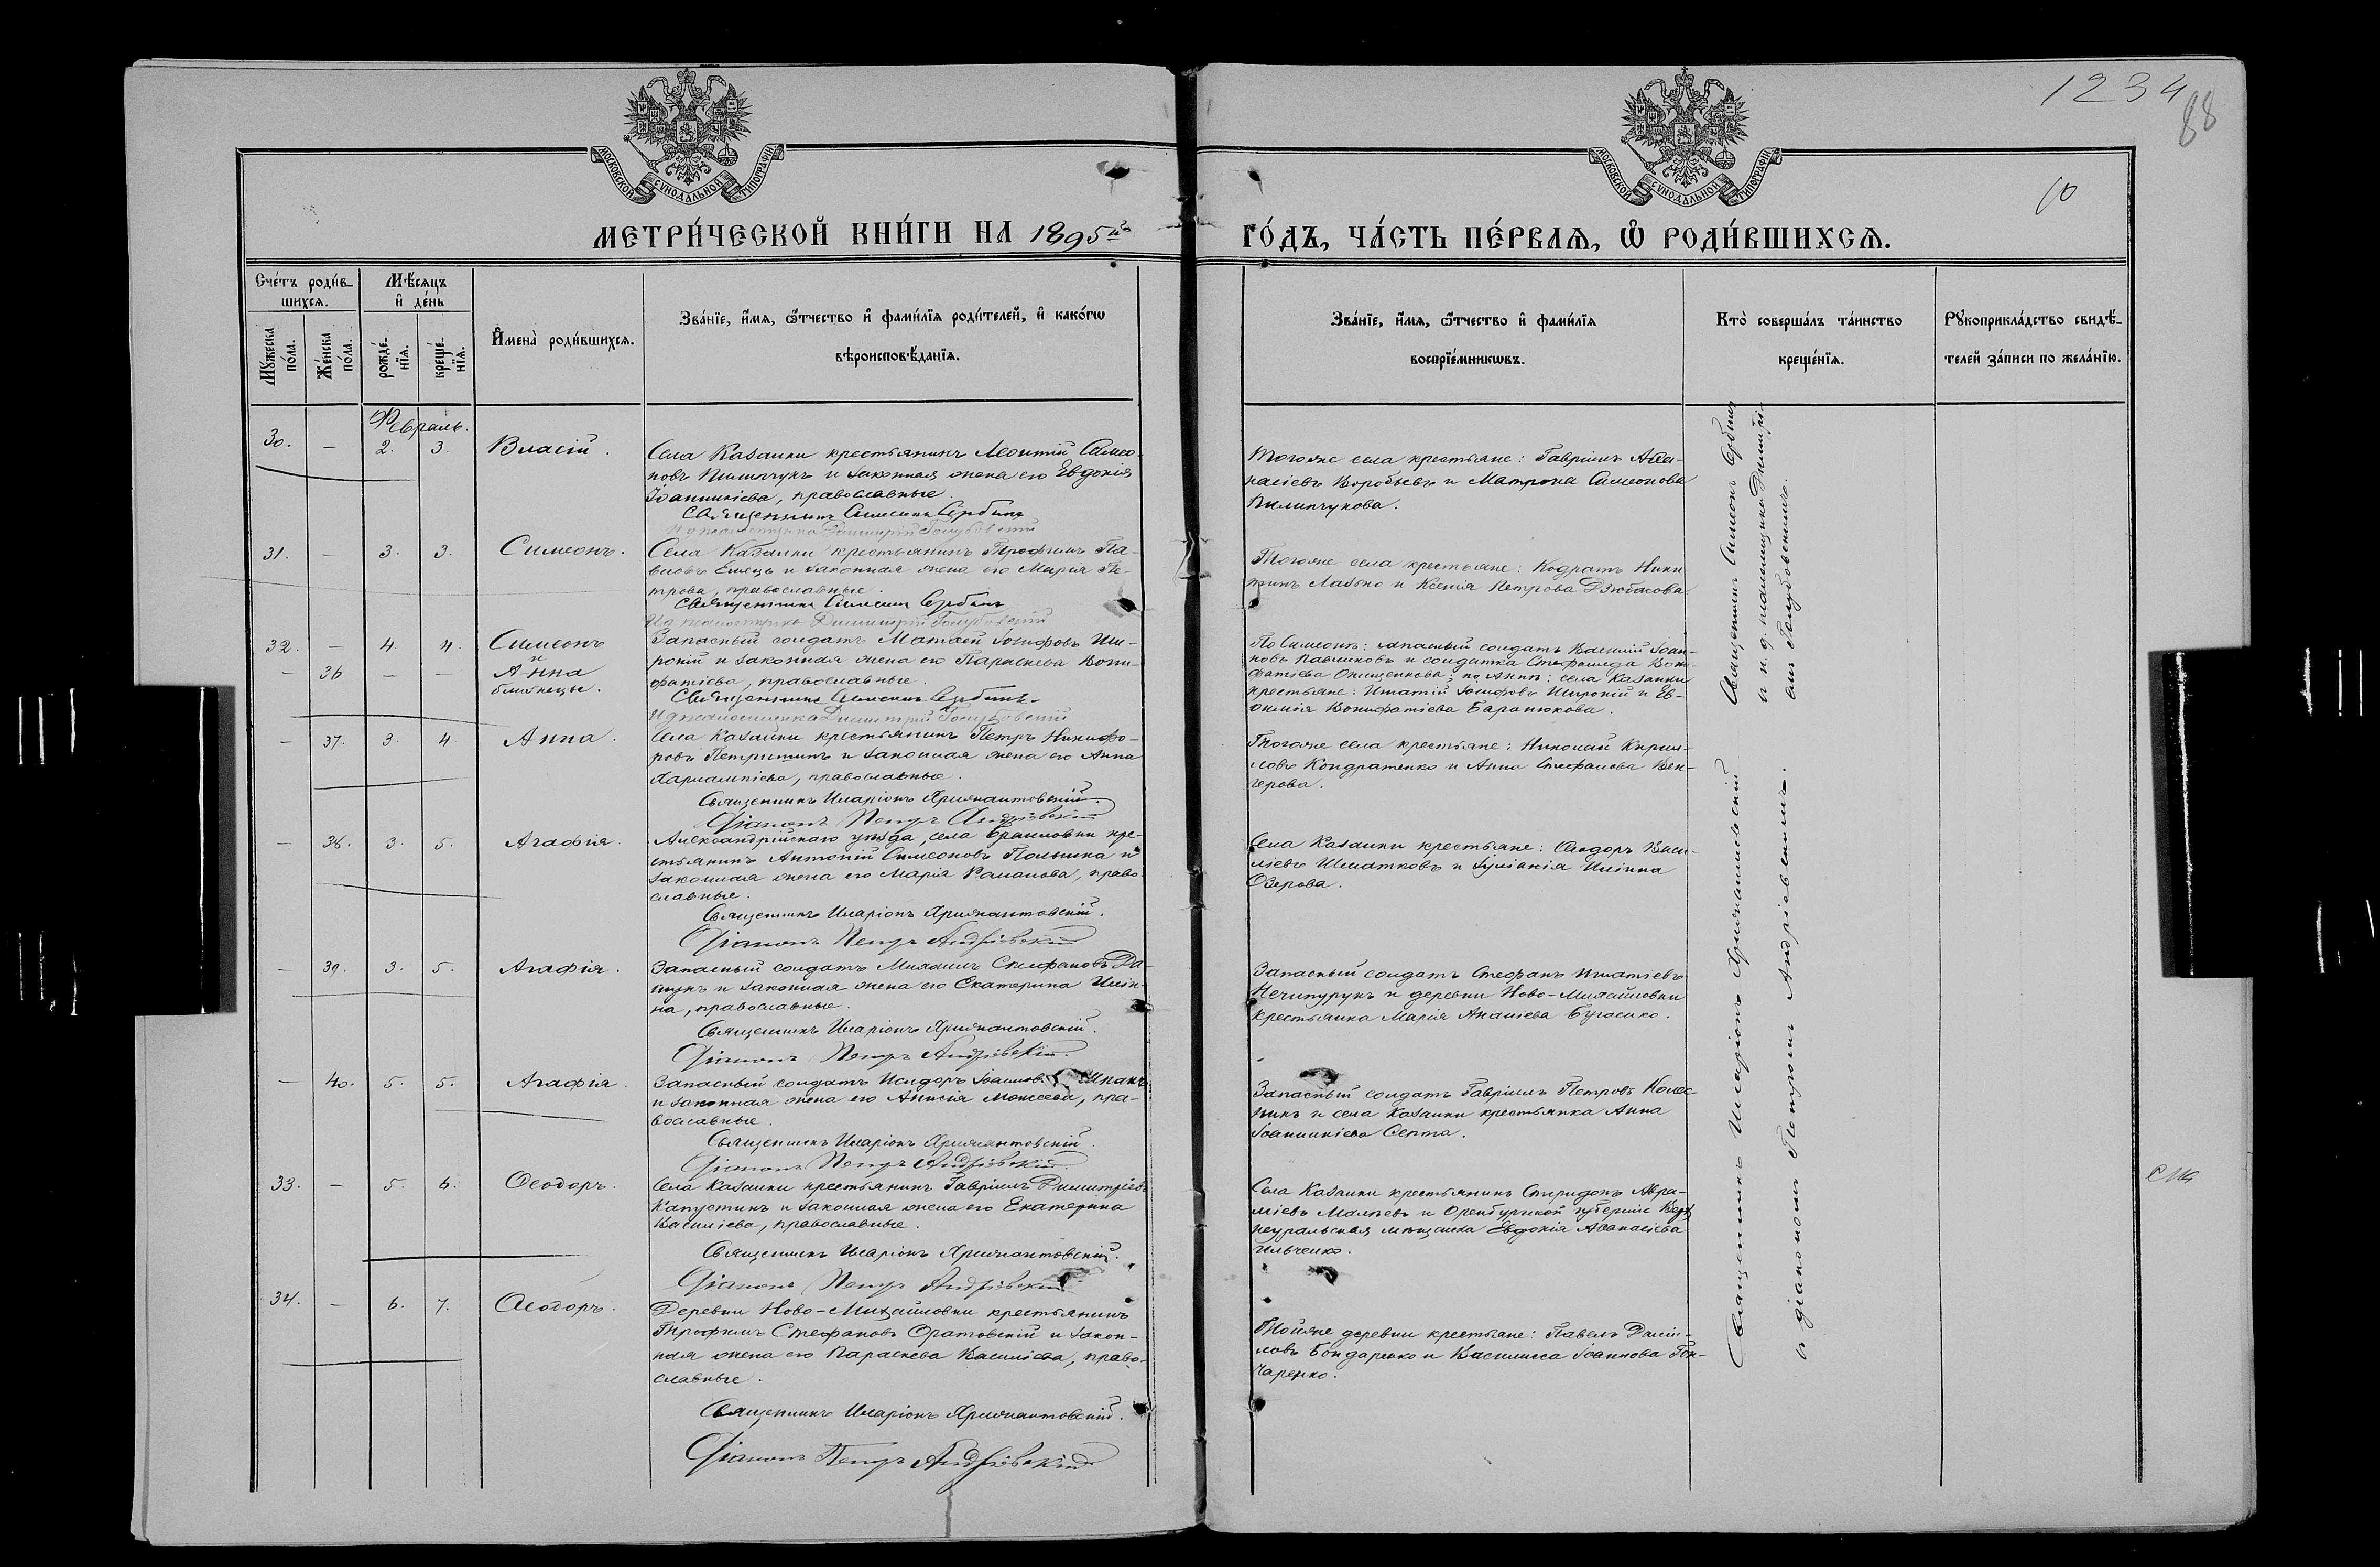 1234
88
10
МОСКОВСКОЙ СѴНОДАЛЬНОЙ ТИПОГРАФІИ
МОСКОВСКОЙ СѴНОДАЛЬНОЙ ТИПОГРАФІИ
МЕТРИ́ЧЕСКОЙ КНИ́ГИ НА 1895й
ГО́ДЪ, ЧА́СТЬ ПЕ́РВАѦ, Ѽ РОДИ́ВШИХСѦ.
Сче́тъ роди́вшихсѧ.
Мꙋ́жеска по́ла.
Же́нска по́ла.
Мѣ́сѧцъ и҆ де́нь
рожде́нїѧ.
креще́нїѧ.
И҆мена̀ роди́вшихсѧ.
Зва́нїе, и҆́мѧ, ѻ҆́тчество и҆ фами́лїѧ роди́телей, и҆ како́гѡ
вѣроисповѣ́данїѧ.
Зва́нїе, и҆́мѧ, ѻ҆́тчество и҆ фами́лїѧ
воспрїе́мникѡвъ.
Кто̀ соверша́лъ та́инство
креще́нїѧ.
Рꙋкоприкла́дство свидѣ́-
телей за́писи по жела́нїю.
Февраль.
30. — 2. 3. Власій.
Села Казанки крестьянинъ Леонтій Симео-
новъ Пилипчукъ и законная жена его Евдокія
Іоанникіева, православные.
Священникъ Симеонъ Сербинъ
И д псаломщика Димитрій Голубовскій
Тогоже села крестьяне: Гавріилъ Аѳа-
насіевъ Воробьевъ и Матрона Симеонова
Пилипчукова.
31. — 3. 3. Симеонъ.
Села Казанки крестьянинъ Трофимъ Па-
вловъ Емецъ и законная жена его Марія Пе-
трова, православные.
Священникъ Симеонъ Сербинъ
И д псаломщика Димитрій Голубовскій
Тогоже села крестьяне: Кодратъ Ники-
тинъ Лазько и Ксенія Петрова Дзюбасова.
32. — 4. 4. Симеонъ
и
— 36 — — Анна
близнецы.
Запасный солдатъ Матѳей Іосифовъ Ши-
рокій и законная жена его Параскева Вони-
фатіева, православные.
Священникъ Симеонъ Сербинъ
И д псаломщика Димитрій Голубовскій
По Симеонѣ: запасный солдатъ Василій Іоан-
новъ Павликовъ и солдатка Стефанида Вони-
фатіева Онищенкова; по Аннѣ: села Казанки
крестьяне: Игнатій Іосифовъ Широкій и Ев-
фимія Вонифатіева Баранюкова.
— 37. 3. 4 Анна.
Села Казанки крестьянинъ Петръ Никифо-
ровъ Петришинъ и законная жена его Анна
Харлампіева, православные.
Священникъ Иларіонъ Хрисанѳовскій.
Діаконъ Петръ Андріевскій
Тогоже села крестьяне: Николай Кирил-
ловъ Кондратенко и Анна Стефанова Вен-
герова.
— 38. 3. 5. Агафія.
Александрійскаго уѣзда, села Браиловки кре-
стьянинъ Антоній Симеоновъ Полынка и
законная жена его Марія Романова, право-
славные.
Священникъ Иларіонъ
Діаконъ Петръ Андріевскій
Села Казанки крестьяне: Ѳеодоръ Васи-
ліевъ Шматковъ и Іуліанія Иліина
Озерова.
— 39. 3. 5. Агафія.
Запасный солдатъ Михаилъ Стефановъ Да-
и законная жена его Екатерина Иліи-
на, православные.
Священникъ Иларіонъ
Діаконъ Петръ Андріевскій.
Запасный солдатъ Стефанъ Игнатіевъ
Нечипурукъ и деревни Ново-Михайловки
крестьянка Марія Ананіева
— 40. 5. 5. Агафія.
Запасный солдатъ Исидоръ Іоанновъ
и законная жена его Анисія Моисеева, пра-
вославные.
Священникъ Иларіонъ
Діаконъ Петръ Андріевскій.
Запасный солдатъ Гавріилъ Петровъ Колес-
никъ и села Казанки крестьянка Анна
Іоанникіева Серпа.
33. — 5. 6. Ѳеодоръ.
Села Казанки крестьянинъ Гавріилъ Димитріевъ
Капустинъ и законная жена его Екатерина
Василіева, православные.
Священникъ Иларіонъ
Діаконъ Петръ Андріевскій
Села Казанки крестьянинъ Спиридонъ Авра-
міевъ Малѣевъ и Оренбургской губерніи Верх-
неуральская мѣщанка Евдокія Аѳанасіева
Ильченко.
34. — 6. 7. Ѳеодоръ.
Деревни Ново-Михайловки крестьянинъ
Трофимъ Стефановъ Оратовскій и закон-
ная жена его Параскева Василіева, право-
славные.
Священникъ Иларіонъ
Діаконъ Петръ Андріевскій
Тойже деревни крестьяне: Павелъ Даніи-
ловъ Бондаренко и Василисса Іоаннова Гон-
чаренко.
Священникъ Симеонъ Сербинъ
и и. д. псаломщика Димитрі-
емъ Голубовскимъ.
Священникъ Иларіонъ
и діакономъ Петромъ Андріевскимъ.